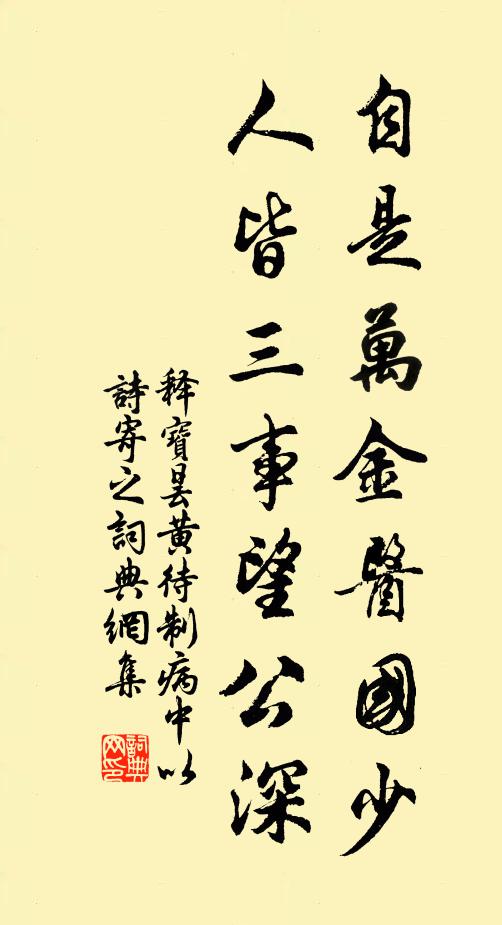 自是萬金醫國少
人皆三事望公深
釋寶曇黃待制病中以
詩寄之詞典網集
詞典
网印